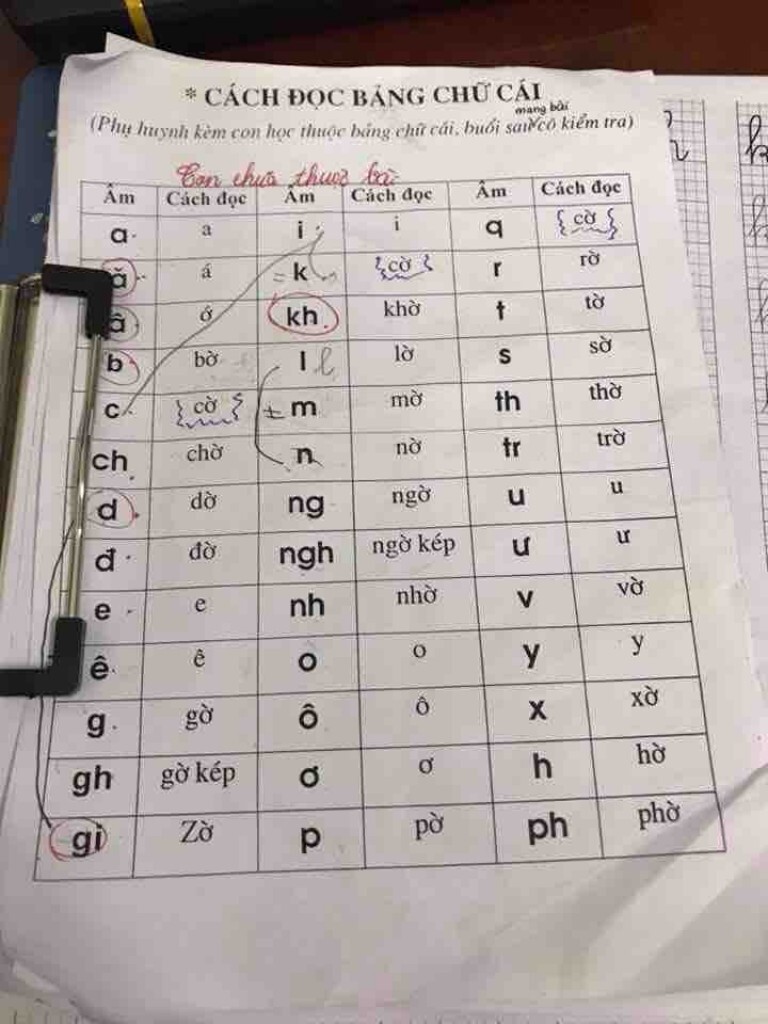 * CÁCH ĐỌC BẢNG CHỮ CÁI
mang bài
(Phụ huynh kèm con học thuộc bảng chữ cái, buổi sau cô kiểm tra)
Con chưa thuộc bài
Âm Cách đọc Âm Cách đọc Âm Cách đọc
a a i i q cờ
ă á k cờ r rờ
â ớ kh khờ t tờ
b bờ l l lờ s sờ
c cờ m mờ th thờ
ch chờ n nờ tr trờ
d dờ ng ngờ u u
đ đờ ngh ngờ kép ư ư
e e nh nhờ v vờ
ê ê o o y y
g gờ ô ô x xờ
gh gờ kép ơ ơ h hờ
gi Zờ p pờ ph phờ